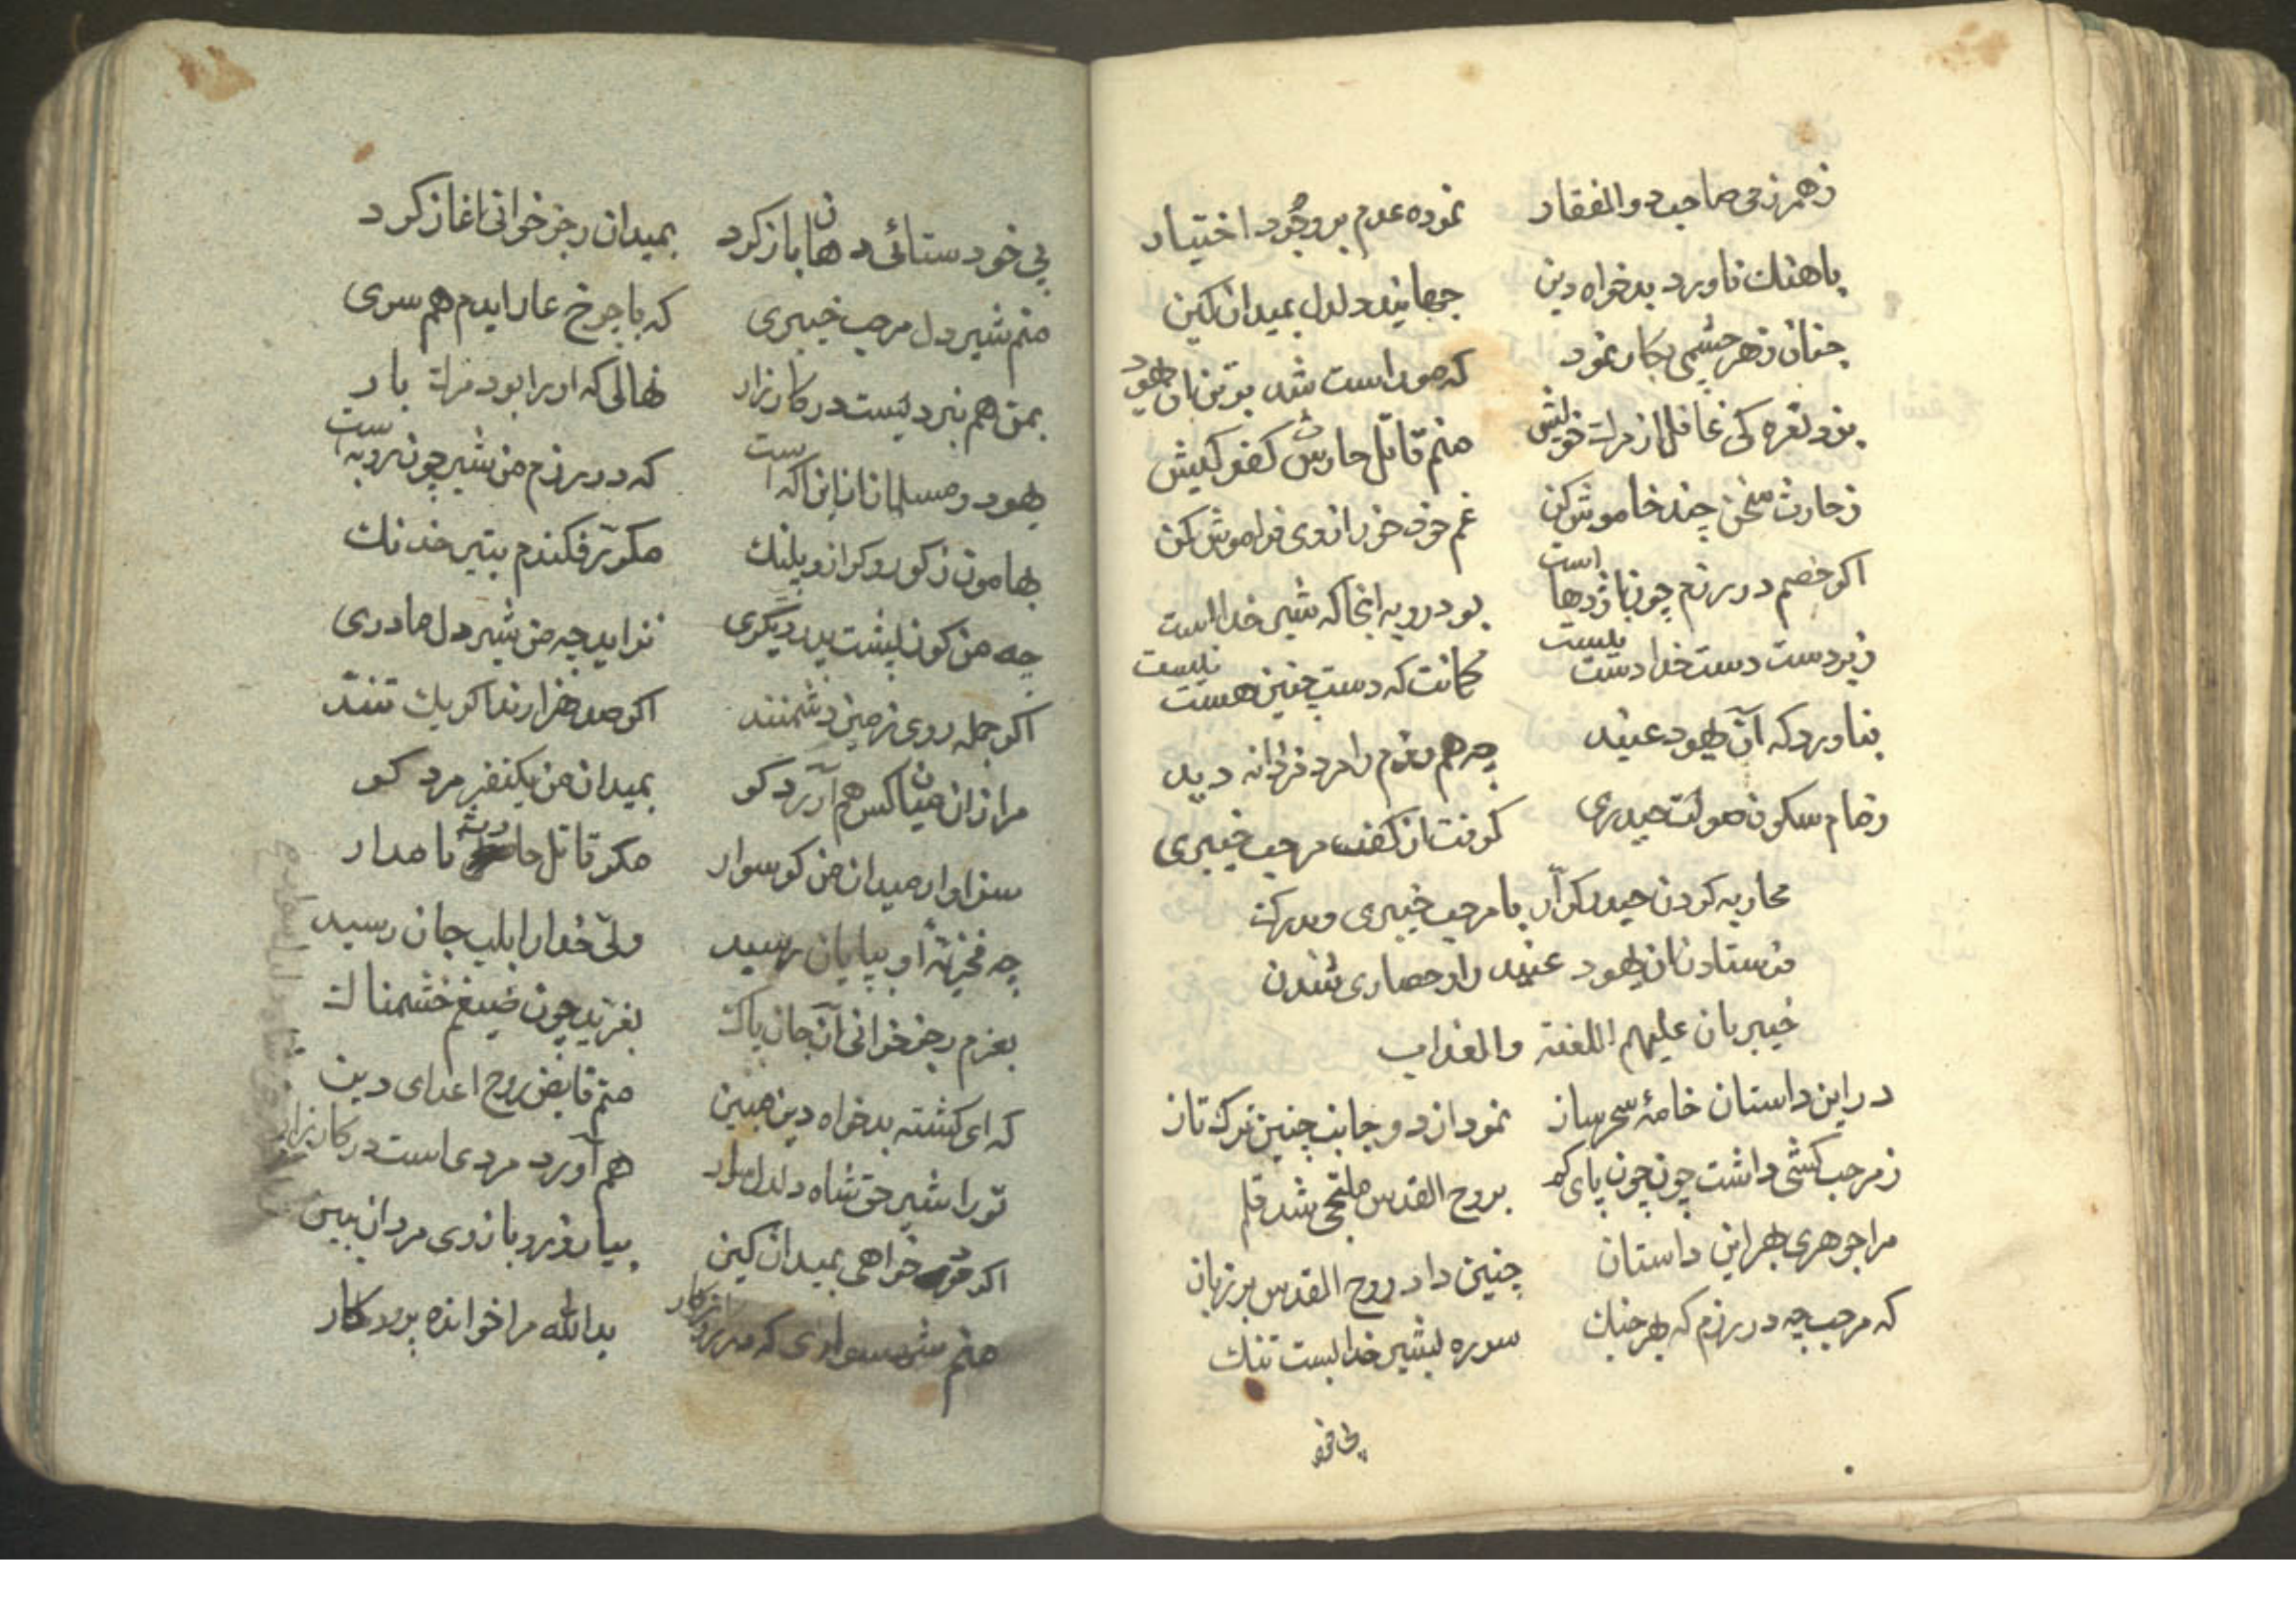 زهمرزمی صاحب ذوالفقار نموده عدم بر وجود اختیار
باهنك ناورد بدخواه دین جهانید دلدل بمیدان کین
چنان زهر چشمی بکار نمود که صد است شد بر تن آن یهود
بزد نعره کی غافل از مرك خویش منم قاتل حارث کفر کیش
زحارث سخن چند خاموش کن غم خود خور از وی فراموش کن
اکر خصم در رزم چون اژدها است بود روبه انجا که شیر خداست
زبر دست دست خدا دست نیست کمانت که دست چنین هست نیست
بناورد که آن یهود عنید چه هم رزم را مرد فرزانه دید
زمام سکون صولت حیدری کرفت از کف مرحب خیبری
محاربه کردن حیدر کرار با مرحب خیبری و بدرك
فرستادن آن یهود عنید را و حصاری شدن
خیبریان علیهم اللعنة والعذاب
در این داستان خامهٔ سحرساز نمود از دو جانب چنین ترك تاز
زمرحب کشی داشت چون چون پای کم بروح القدس ملتجی شد قلم
مرا جوهری بهر این داستان چنین داد روح القدس بر زبان
که مرحب چه در رزم که بهر جنك سر ره بشیر خدا بست تنك
پی خود
پی خود ستائی دهان باز کرد بمیدان رجز خوانی اغاز کرد
منم شیر دل مرحب خیبری که با چرخ عار ایدم هم سری
بمن هم نبرد نیست در کارزار نهالی که او را بود مرك بار
یهود و مسلمان از این اکه است که در رزم من شیر چون روبه است
بهامون ز کور و کراز و پلنك مکرر فکندم بتیر خدنك
چه من کو ز پشت پدر دیگری نزاید چه من شیر دل مادری
اکر جمله روی زمین دشمنند اکر صد هزارند اکر یك تنند
مرا زان میان کس هم آورد کو بمیدان من یکنفر مرد کو
سزاوار میدان من کو سوار مکر قاتل حارث نامدار
چه فخریهٔ او بپایان رسید ولی خدا را بلب جان رسید
بعزم رجز خوانی آن جان پاك بغرید چون ضیغم خشمناك
که ای کشته بدخواه دین مبین منم قابض روح اعدای دین
تو را شیر حق شاه دلدل سوار هم آورد مردی است در کارزار
اکر خواهی بمیدان کین بیا زور و بازوی مردان ببین
منم شهسواری که یدالله مرا خوانده پرورد کار